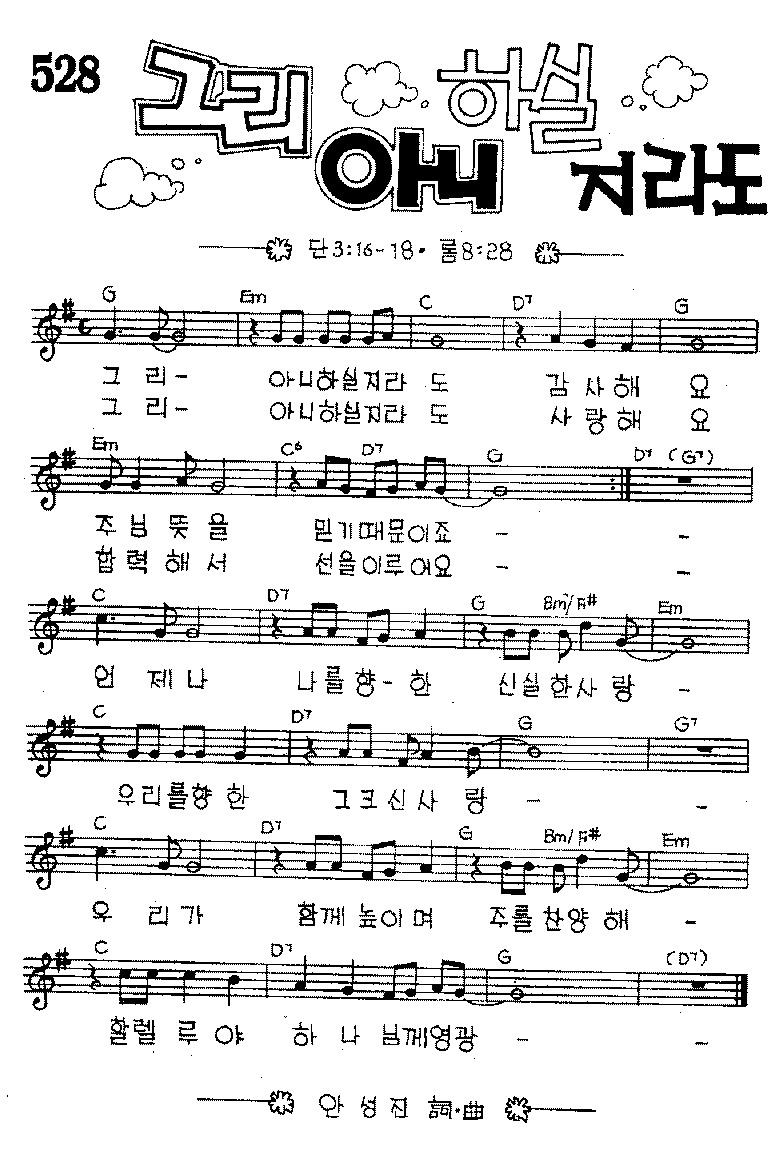 528
그리 하실
아니 지라도
단3:16-18· 롬8:28
G Em C D7 G
그 리 - 아니하실지라 도 감 사 해 요
그 리 - 아니하실지라 도 사 랑 해 요
Em C6 D7 G D7 (G7)
주 님 뜻 을 믿기때문이죠 - -
합 력 해 서 선을이루어요 - -
C D7 G Bm/F# Em
언 제 나 나를향-한 신실한사 랑 -
C D7 G G7
우리를향 한 그크신사 랑 - -
C D7 G Bm/F# Em
우 리 가 함께높이며 주를찬양 해 -
C D7 G (D7)
할렐 루 야 하 나 님께영광 - -
안 성 진 詞·曲